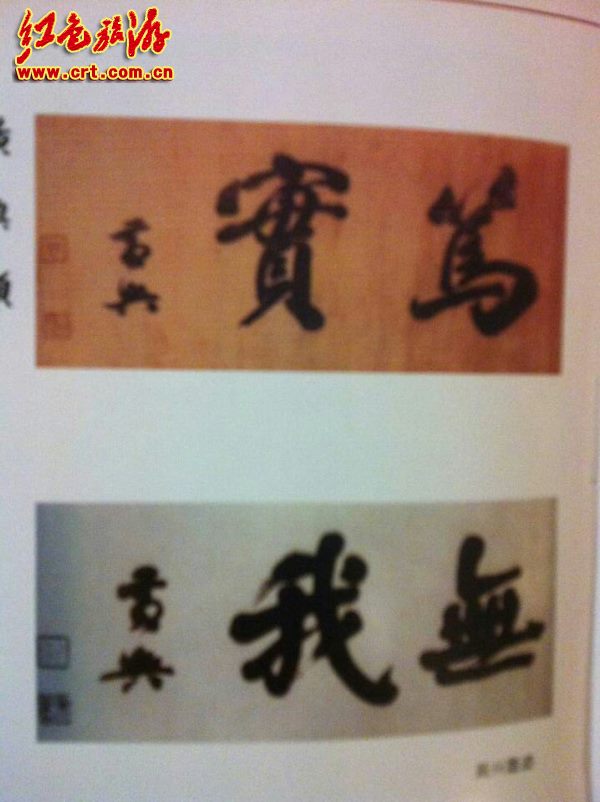 红色旅游
www.crt.com.cn
篤實
黄興
無我
黄興